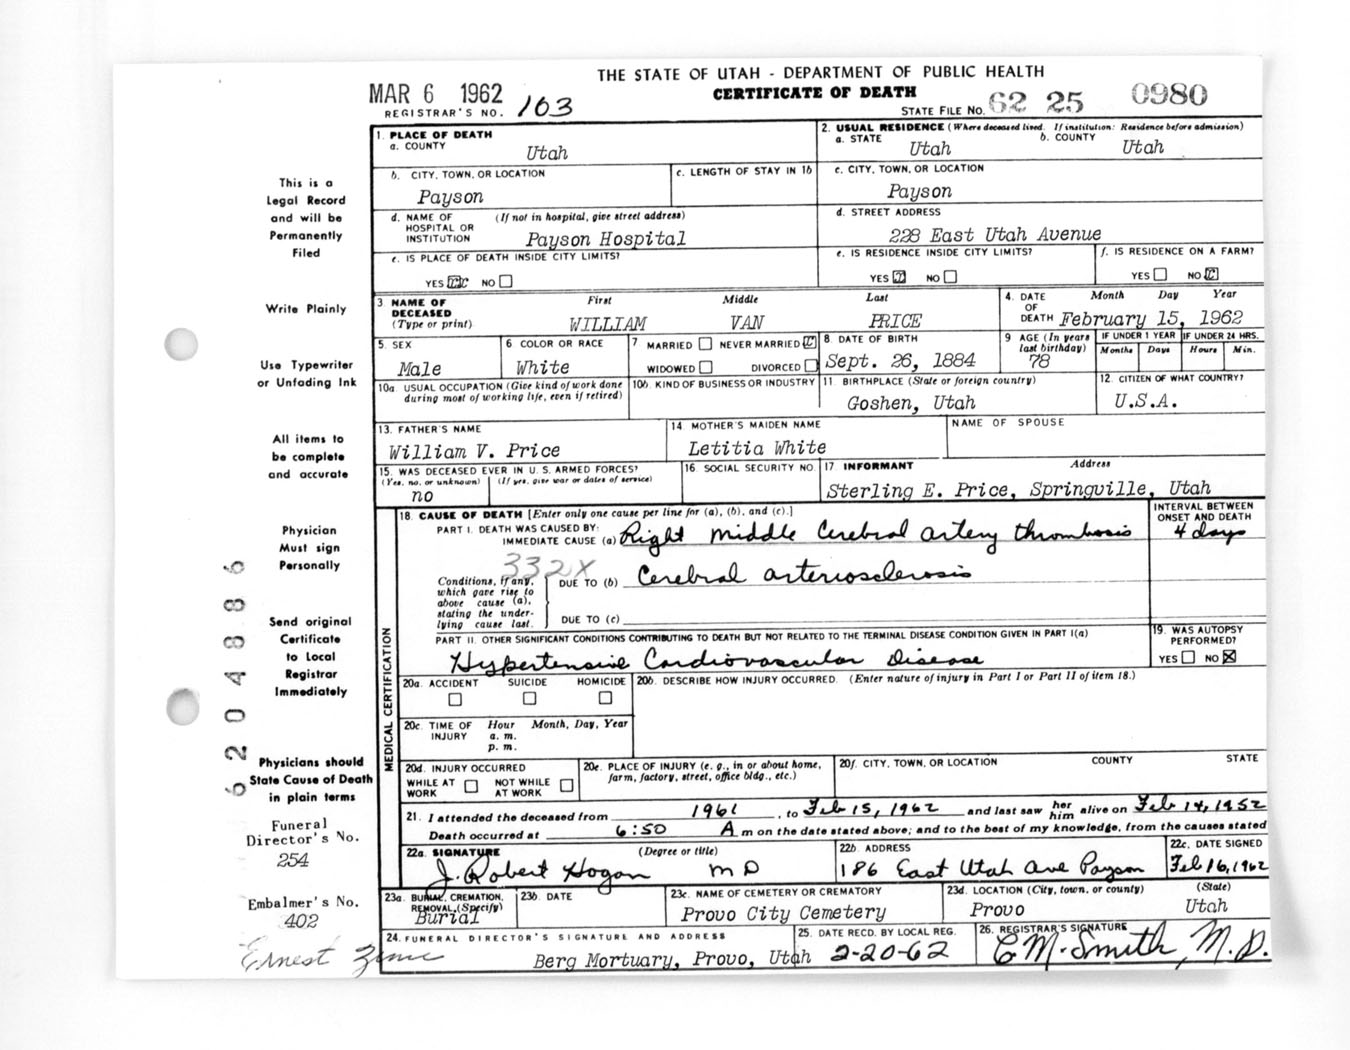 THE STATE OF UTAH - DEPARTMENT OF PUBLIC HEALTH
MAR 6 1962
CERTIFICATE OF DEATH
REGISTRAR'S NO. 103
STATE FILE NO. 62 25 0980
1. PLACE OF DEATH
a. COUNTY
Utah
2. USUAL RESIDENCE (Where deceased lived. If institution: Residence before admission)
a. STATE
Utah
b. COUNTY
Utah
b. CITY, TOWN, OR LOCATION
Payson
c. LENGTH OF STAY IN 1b
c. CITY, TOWN, OR LOCATION
Payson
d. NAME OF HOSPITAL OR INSTITUTION
(If not in hospital, give street address)
Payson Hospital
d. STREET ADDRESS
228 East Utah Avenue
e. IS PLACE OF DEATH INSIDE CITY LIMITS?
YES NO
e. IS RESIDENCE INSIDE CITY LIMITS?
YES NO
f. IS RESIDENCE ON A FARM?
YES NO
3. NAME OF DECEASED
(Type or print)
First Middle Last
WILLIAM VAN PRICE
4. DATE OF DEATH
Month Day Year
February 15, 1962
5. SEX
Male
6 COLOR OR RACE
White
7 MARRIED NEVER MARRIED
WIDOWED DIVORCED
8. DATE OF BIRTH
Sept. 26, 1884
9 AGE (In years last birthday)
78
IF UNDER 1 YEAR
Months Days
IF UNDER 24 HRS.
Hours Min.
10a. USUAL OCCUPATION (Give kind of work done during most of working life, even if retired)
10b. KIND OF BUSINESS OR INDUSTRY
11. BIRTHPLACE (State or foreign country)
Goshen, Utah
12. CITIZEN OF WHAT COUNTRY?
U.S.A.
13. FATHER'S NAME
William V. Price
14 MOTHER'S MAIDEN NAME
Letitia White
NAME OF SPOUSE
15. WAS DECEASED EVER IN U. S. ARMED FORCES?
(Yes, no, or unknown) (If yes, give war or dates of service)
no
16. SOCIAL SECURITY NO.
17. INFORMANT Address
Sterling E. Price, Springville, Utah
18. CAUSE OF DEATH [Enter only one cause per line for (a), (b), and (c).]
INTERVAL BETWEEN ONSET AND DEATH
PART I. DEATH WAS CAUSED BY:
IMMEDIATE CAUSE (a) Right middle Cerebral artery thrombosis
4 days
332X
Conditions, if any, which gave rise to above cause (a), stating the underlying cause last.
DUE TO (b) Cerebral arteriosclerosis
DUE TO (c)
PART II. OTHER SIGNIFICANT CONDITIONS CONTRIBUTING TO DEATH BUT NOT RELATED TO THE TERMINAL DISEASE CONDITION GIVEN IN PART I(a)
Hypertensive Cardiovascular Disease
19. WAS AUTOPSY PERFORMED?
YES NO
MEDICAL CERTIFICATION
20a. ACCIDENT SUICIDE HOMICIDE
20b. DESCRIBE HOW INJURY OCCURRED. (Enter nature of injury in Part I or Part II of item 18.)
20c. TIME OF INJURY
Hour Month, Day, Year
a. m.
p. m.
20d. INJURY OCCURRED
WHILE AT WORK NOT WHILE AT WORK
20e. PLACE OF INJURY (e. g., in or about home, farm, factory, street, office bldg., etc.)
20f. CITY, TOWN, OR LOCATION COUNTY STATE
21. I attended the deceased from 1961, to Feb 15, 1962 and last saw her him alive on Feb 14, 1952
Death occurred at 6:50 A m on the date stated above; and to the best of my knowledge, from the causes stated
22a. SIGNATURE (Degree or title)
J. Robert Hogan MD
22b. ADDRESS
186 East Utah Ave Payson
22c. DATE SIGNED
Feb 16, 1962
23a. BURIAL, CREMATION, REMOVAL, (Specify)
Burial
23b. DATE
23c. NAME OF CEMETERY OR CREMATORY
Provo City Cemetery
23d. LOCATION (City, town, or county) (State)
Provo Utah
24. FUNERAL DIRECTOR'S SIGNATURE AND ADDRESS
Berg Mortuary, Provo, Utah
25. DATE RECD. BY LOCAL REG.
2-20-62
26. REGISTRAR'S SIGNATURE
C M. Smith, M. D.
This is a
Legal Record
and will be
Permanently
Filed
Write Plainly
Use Typewriter
or Unfading Ink
All items to
be complete
and accurate
Physician
Must sign
Personally
Send original
Certificate
to Local
Registrar
Immediately
Physicians should
State Cause of Death
in plain terms
Funeral
Director's No.
254
Embalmer's No.
402
Ernest